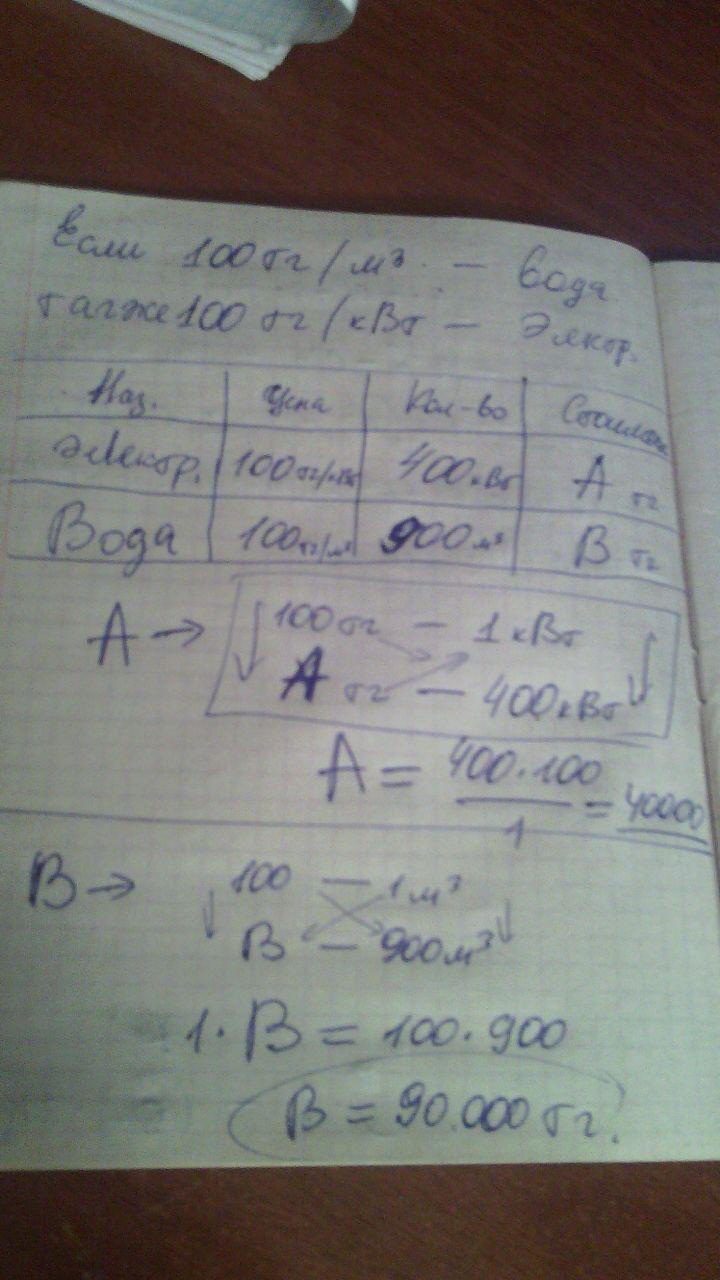 Если 100 тг/м³ — Вода
также 100 тг/кВт — Электр.
Наз. Цена Кол-во Стоимость
Электр. 100тг/кВт 400кВт А тг
Вода 100тг/м³ 900м³ В тг
А → 100 тг — 1 кВт
А тг — 400кВт
А = 400·100 / 1 = 40000
В → 100 — 1м³
В — 900м³
1·В = 100·900
В = 90.000 тг.